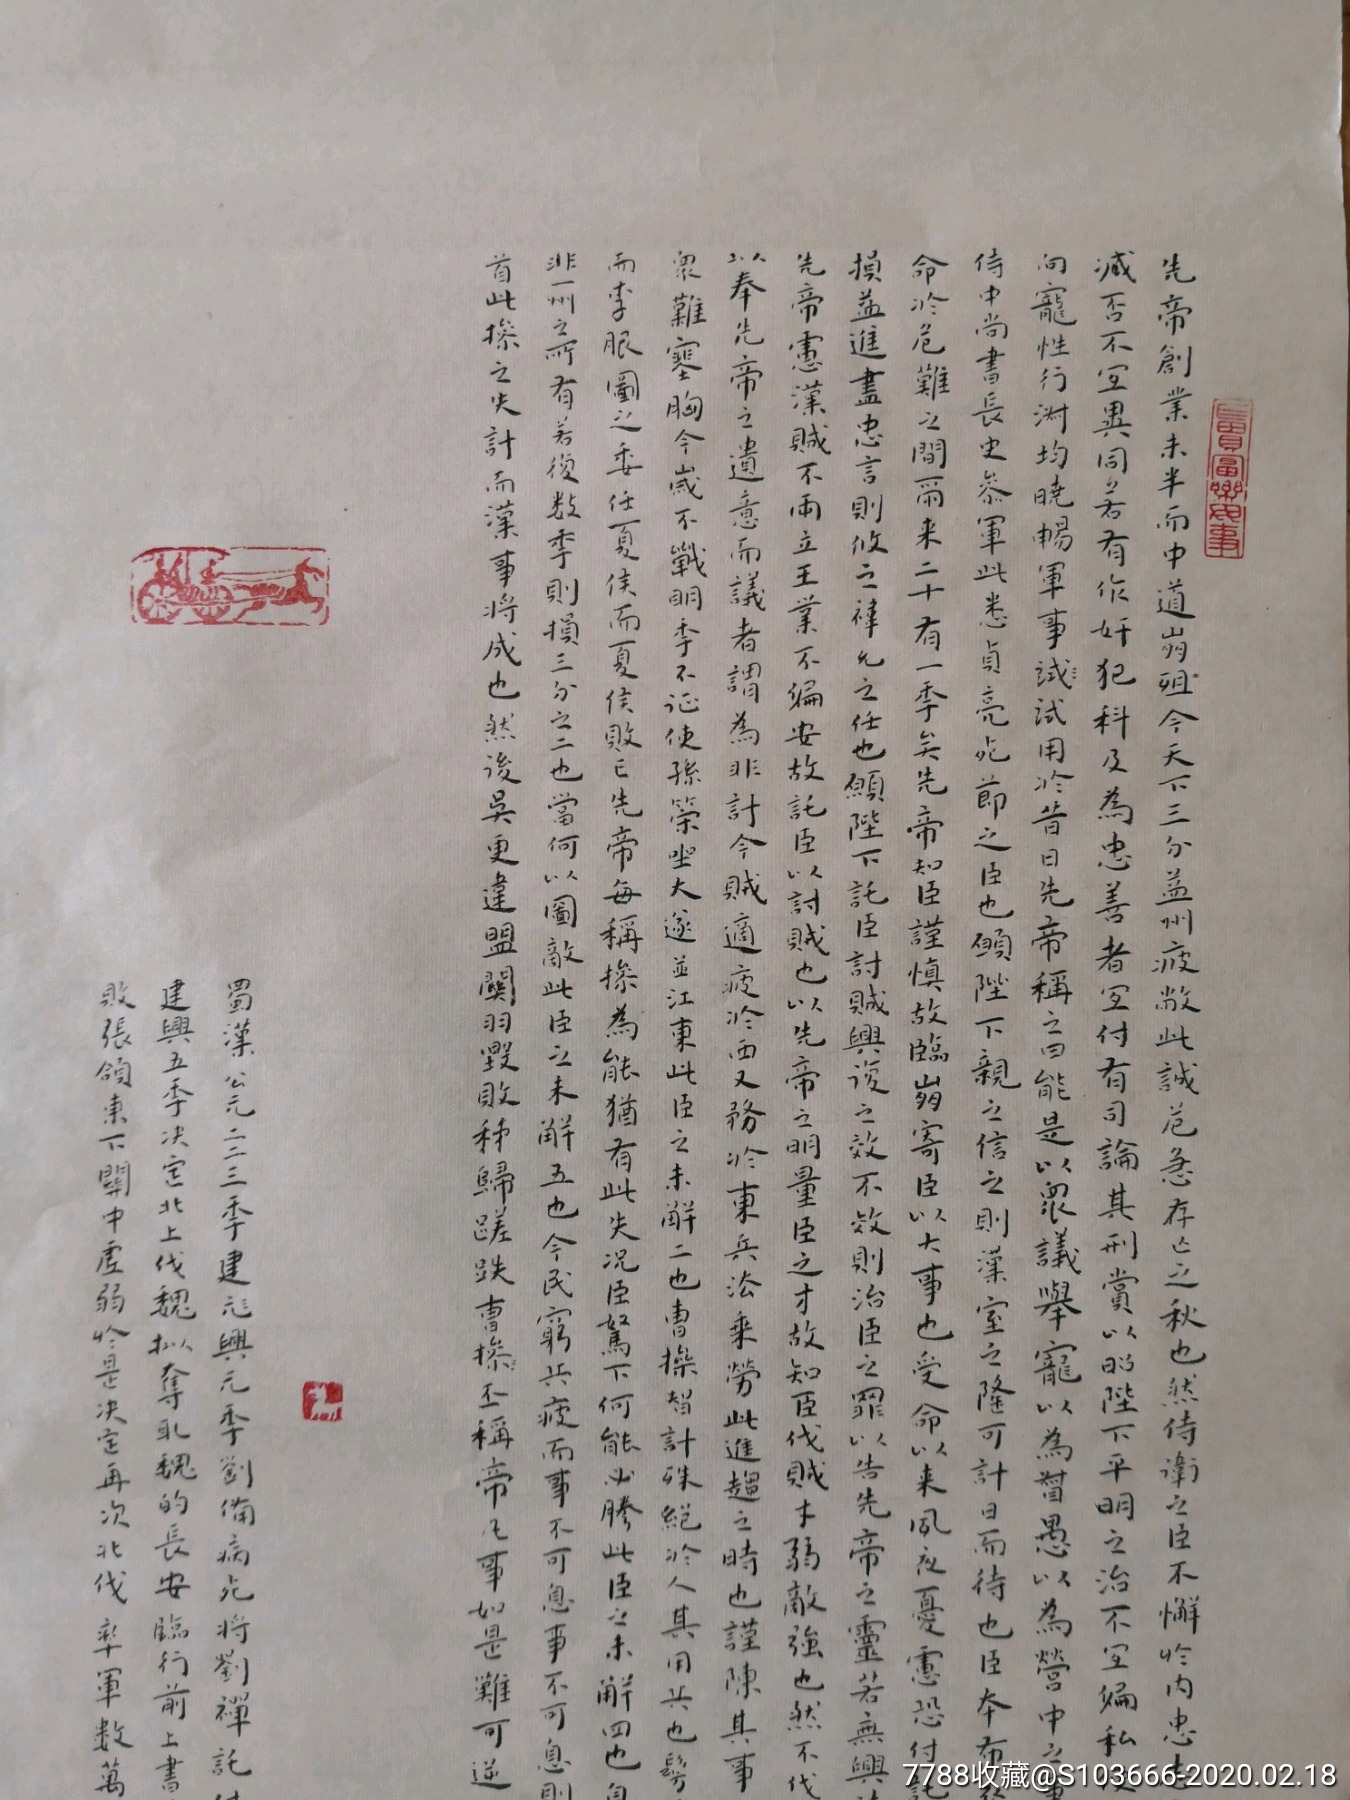 先帝創業未半而中道崩殂今天下三分益州疲敝此誠危急存亡之秋也然侍衛之臣不懈於内忠志
臧否不宜異同若有作奸犯科及為忠善者宜付有司論其刑賞以昭陛下平明之治不宜偏私
向寵性行淑均曉暢軍事試試用於昔日先帝稱之曰能是以眾議舉寵以為督愚以為營中之事
侍中尚書長史參軍此悉貞亮死節之臣也願陛下親之信之則漢室之隆可計日而待也臣本布
命於危難之間爾来二十有一季矣先帝知臣謹慎故臨崩寄臣以大事也受命以来夙夜憂慮恐付託
損益進盡忠言則攸之禕允之任也願陛下託臣討賊興復之效不效則治臣之罪以告先帝之靈若無興
先帝慮漢賊不兩立王業不偏安故託臣以討賊也以先帝之明量臣之才故知臣伐賊才弱敵強也然不伐
以奉先帝之遺意而議者謂為非計今賊適疲於西又務於東兵法乘勞此進趨之時也謹陳其事
眾難塞胸今歲不戰明季不征使孫策坐大遂並江東此臣之未解二也曹操智計殊絕於人其用兵也髣
而李服圖之委任夏侯而夏侯敗亡先帝每稱操為能猶有此失況臣駑下何能必勝此臣之未解四也自
非一州之所有若復数季則損三分之二也當何以圖敵此臣之未解五也今民窮兵疲而事不可息事不可息則
首此操之失計而漢事將成也然後吳更違盟關羽毀敗秭歸蹉跌曹操丕稱帝凡事如是難可逆
蜀漢公元二二三季建興元季劉備病死將劉禪託付
建興五季决定北上伐魏拟奪取魏的長安臨行前上書
敗張領東下關中虛弱於是决定再次北伐率軍数萬
7788收藏@S103666-2020.02.18